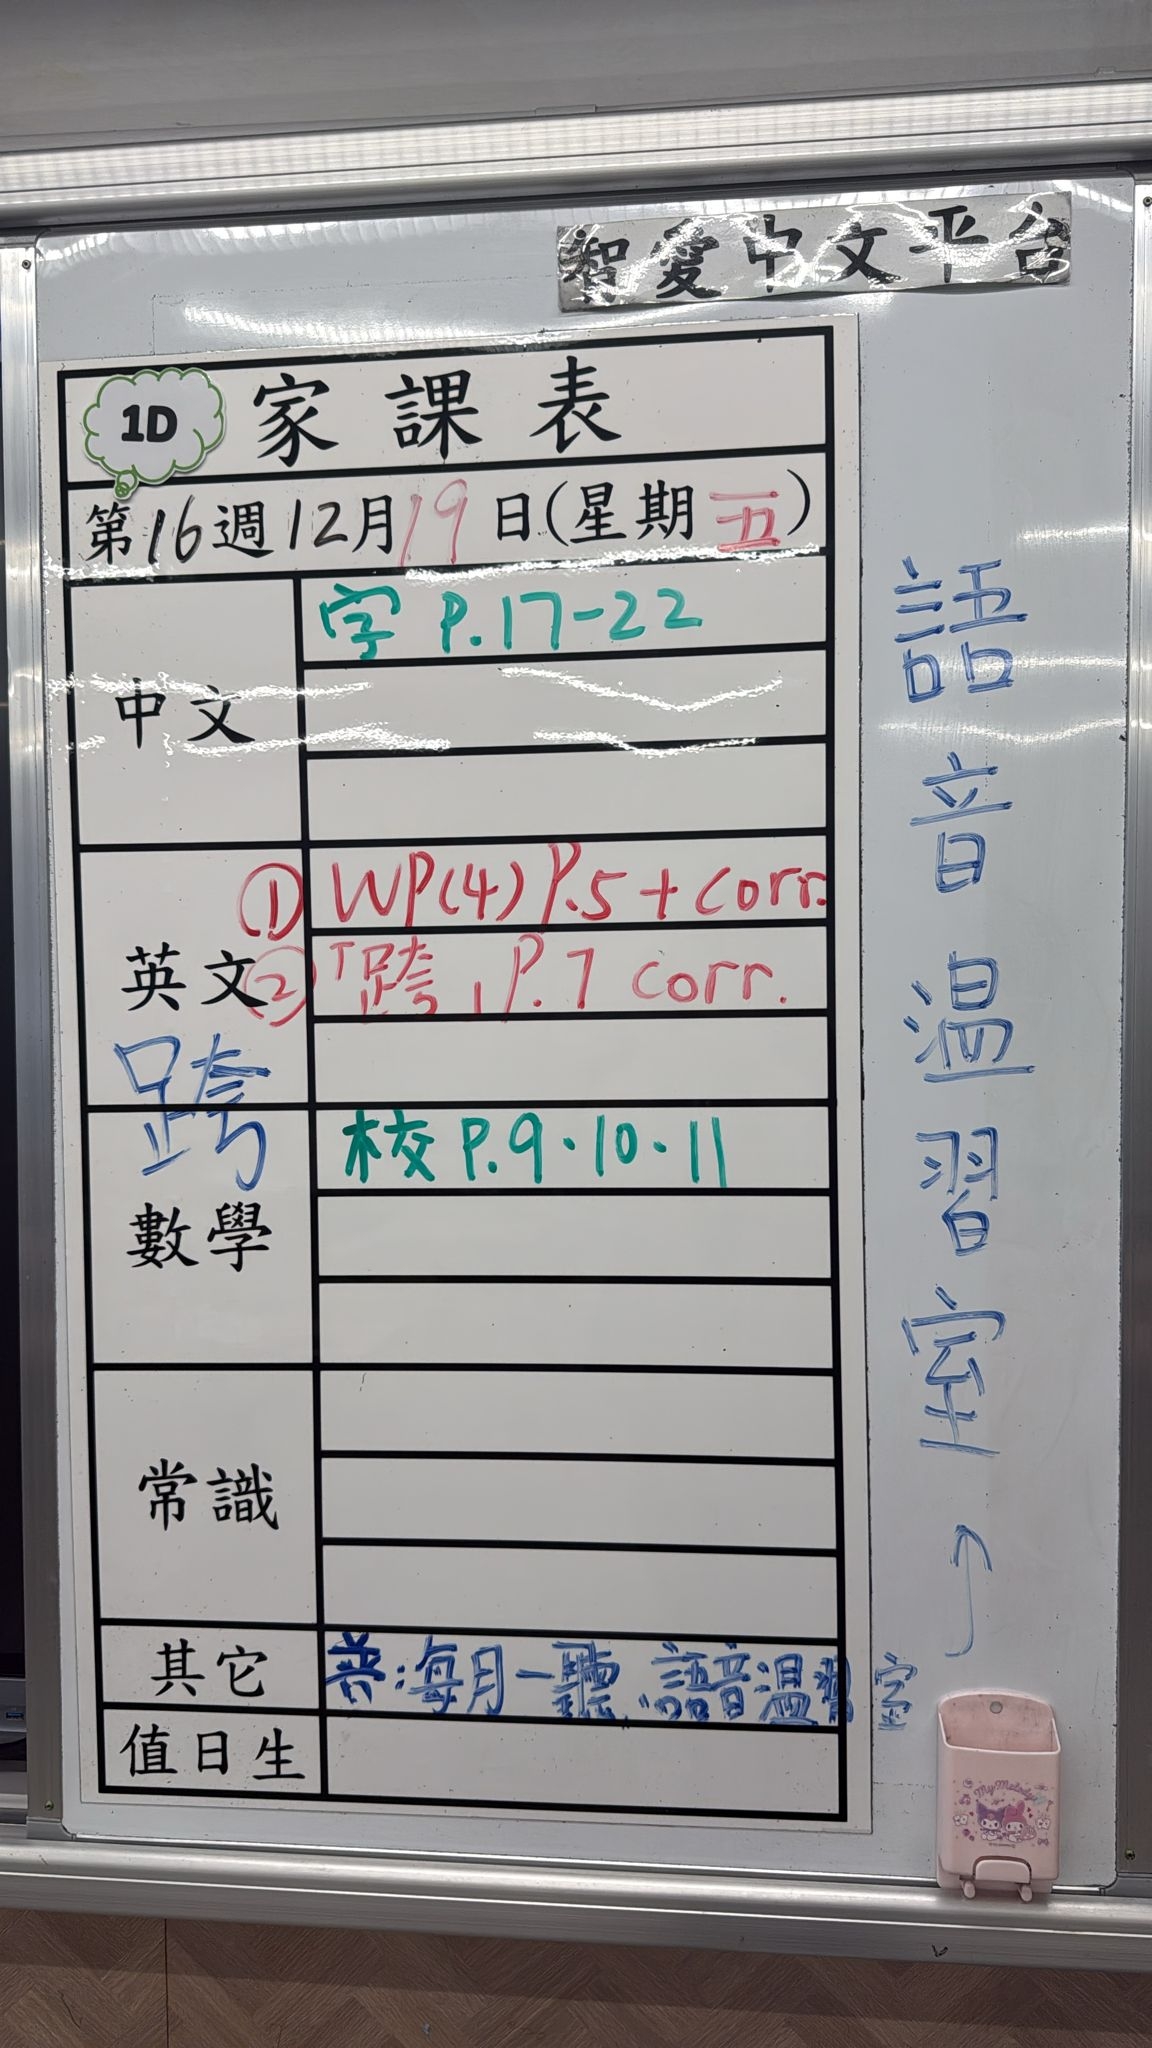 智愛中文平台
1D 家課表
第16週12月19日(星期五)
中文
字 P.17-22
英文
① WP(4) P.5 + corr.
② 「跨」P.7 corr.
跨
數學
校 P.9.10.11
常識
其它
普:每月一聽、語音溫習室
值日生
語音溫習室
My Melody